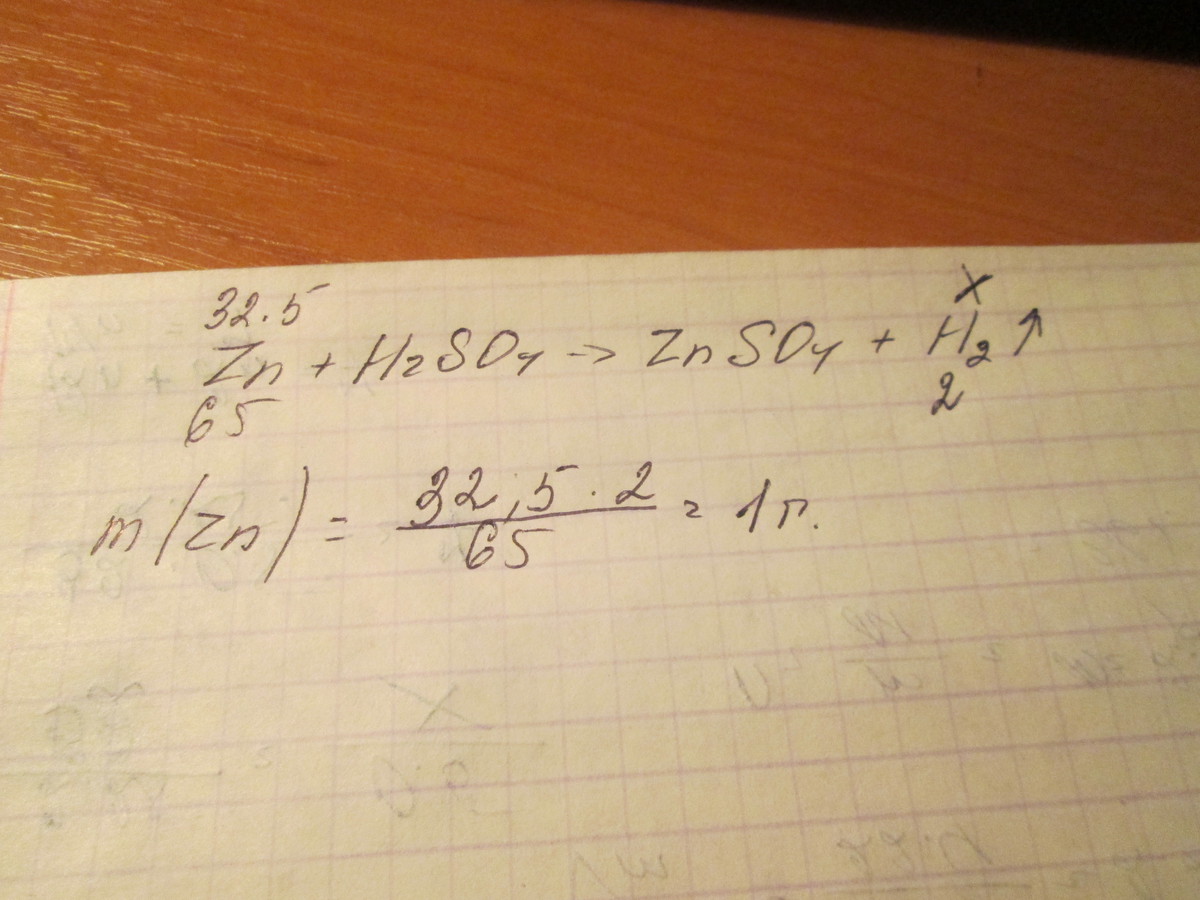 32.5 X
Zn + H2SO4 -> ZnSO4 + H2↑
65 2
m(Zn) = 32,5 · 2 / 65 = 1г.